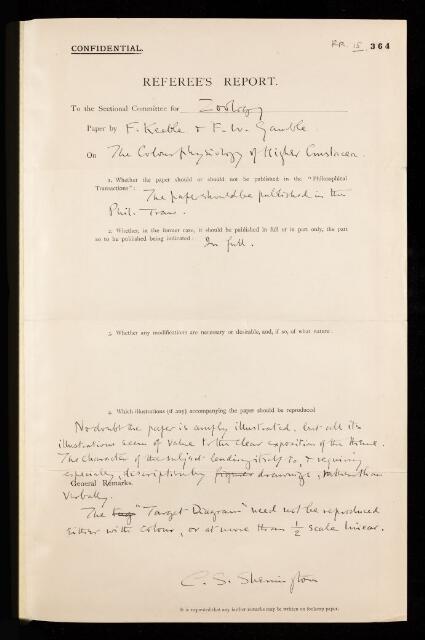 CONFIDENTIAL.
RR. 15 364
REFEREE'S REPORT.
To the Sectional Committee for Zoology
Paper by F. Keeble & F. W. Gamble
On The Colour physiology of Higher Crustacea.
1. Whether the paper should or should not be published in the "Philosophical
Transactions": The paper should be published in the
Phil. Trans.
2. Whether, in the former case, it should be published in full or in part only, the part
so to be published being indicated: In full.
3. Whether any modifications are necessary or desirable, and, if so, of what nature:
4. Which illustrations (if any) accompanying the paper should be reproduced
No doubt the paper is amply illustrated, but all its
illustrations seem of value to the clear exposition of the theme.
The character of the subject lending itself to, & requiring
especially, description by figures drawings, rather than
General Remarks.
verbally.
The "Target Diagram" need not be reproduced
either with colour, or at more than 1/2 scale linear.
C. S. Sherrington
It is requested that any further remarks may be written on foolscap paper.